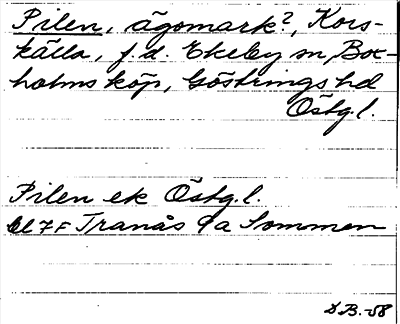 Pilen, ägomark?, Kors-
källa, f.d. Ekeby sn, Box-
holms köp, Göstrings hd
Östg.l.
Pilen ek Östg.l.
bl 7F Tranås 9a Sommen
D.B.-58